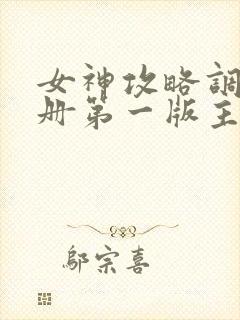 女神攻略調
册第一版主
鄔宗喜